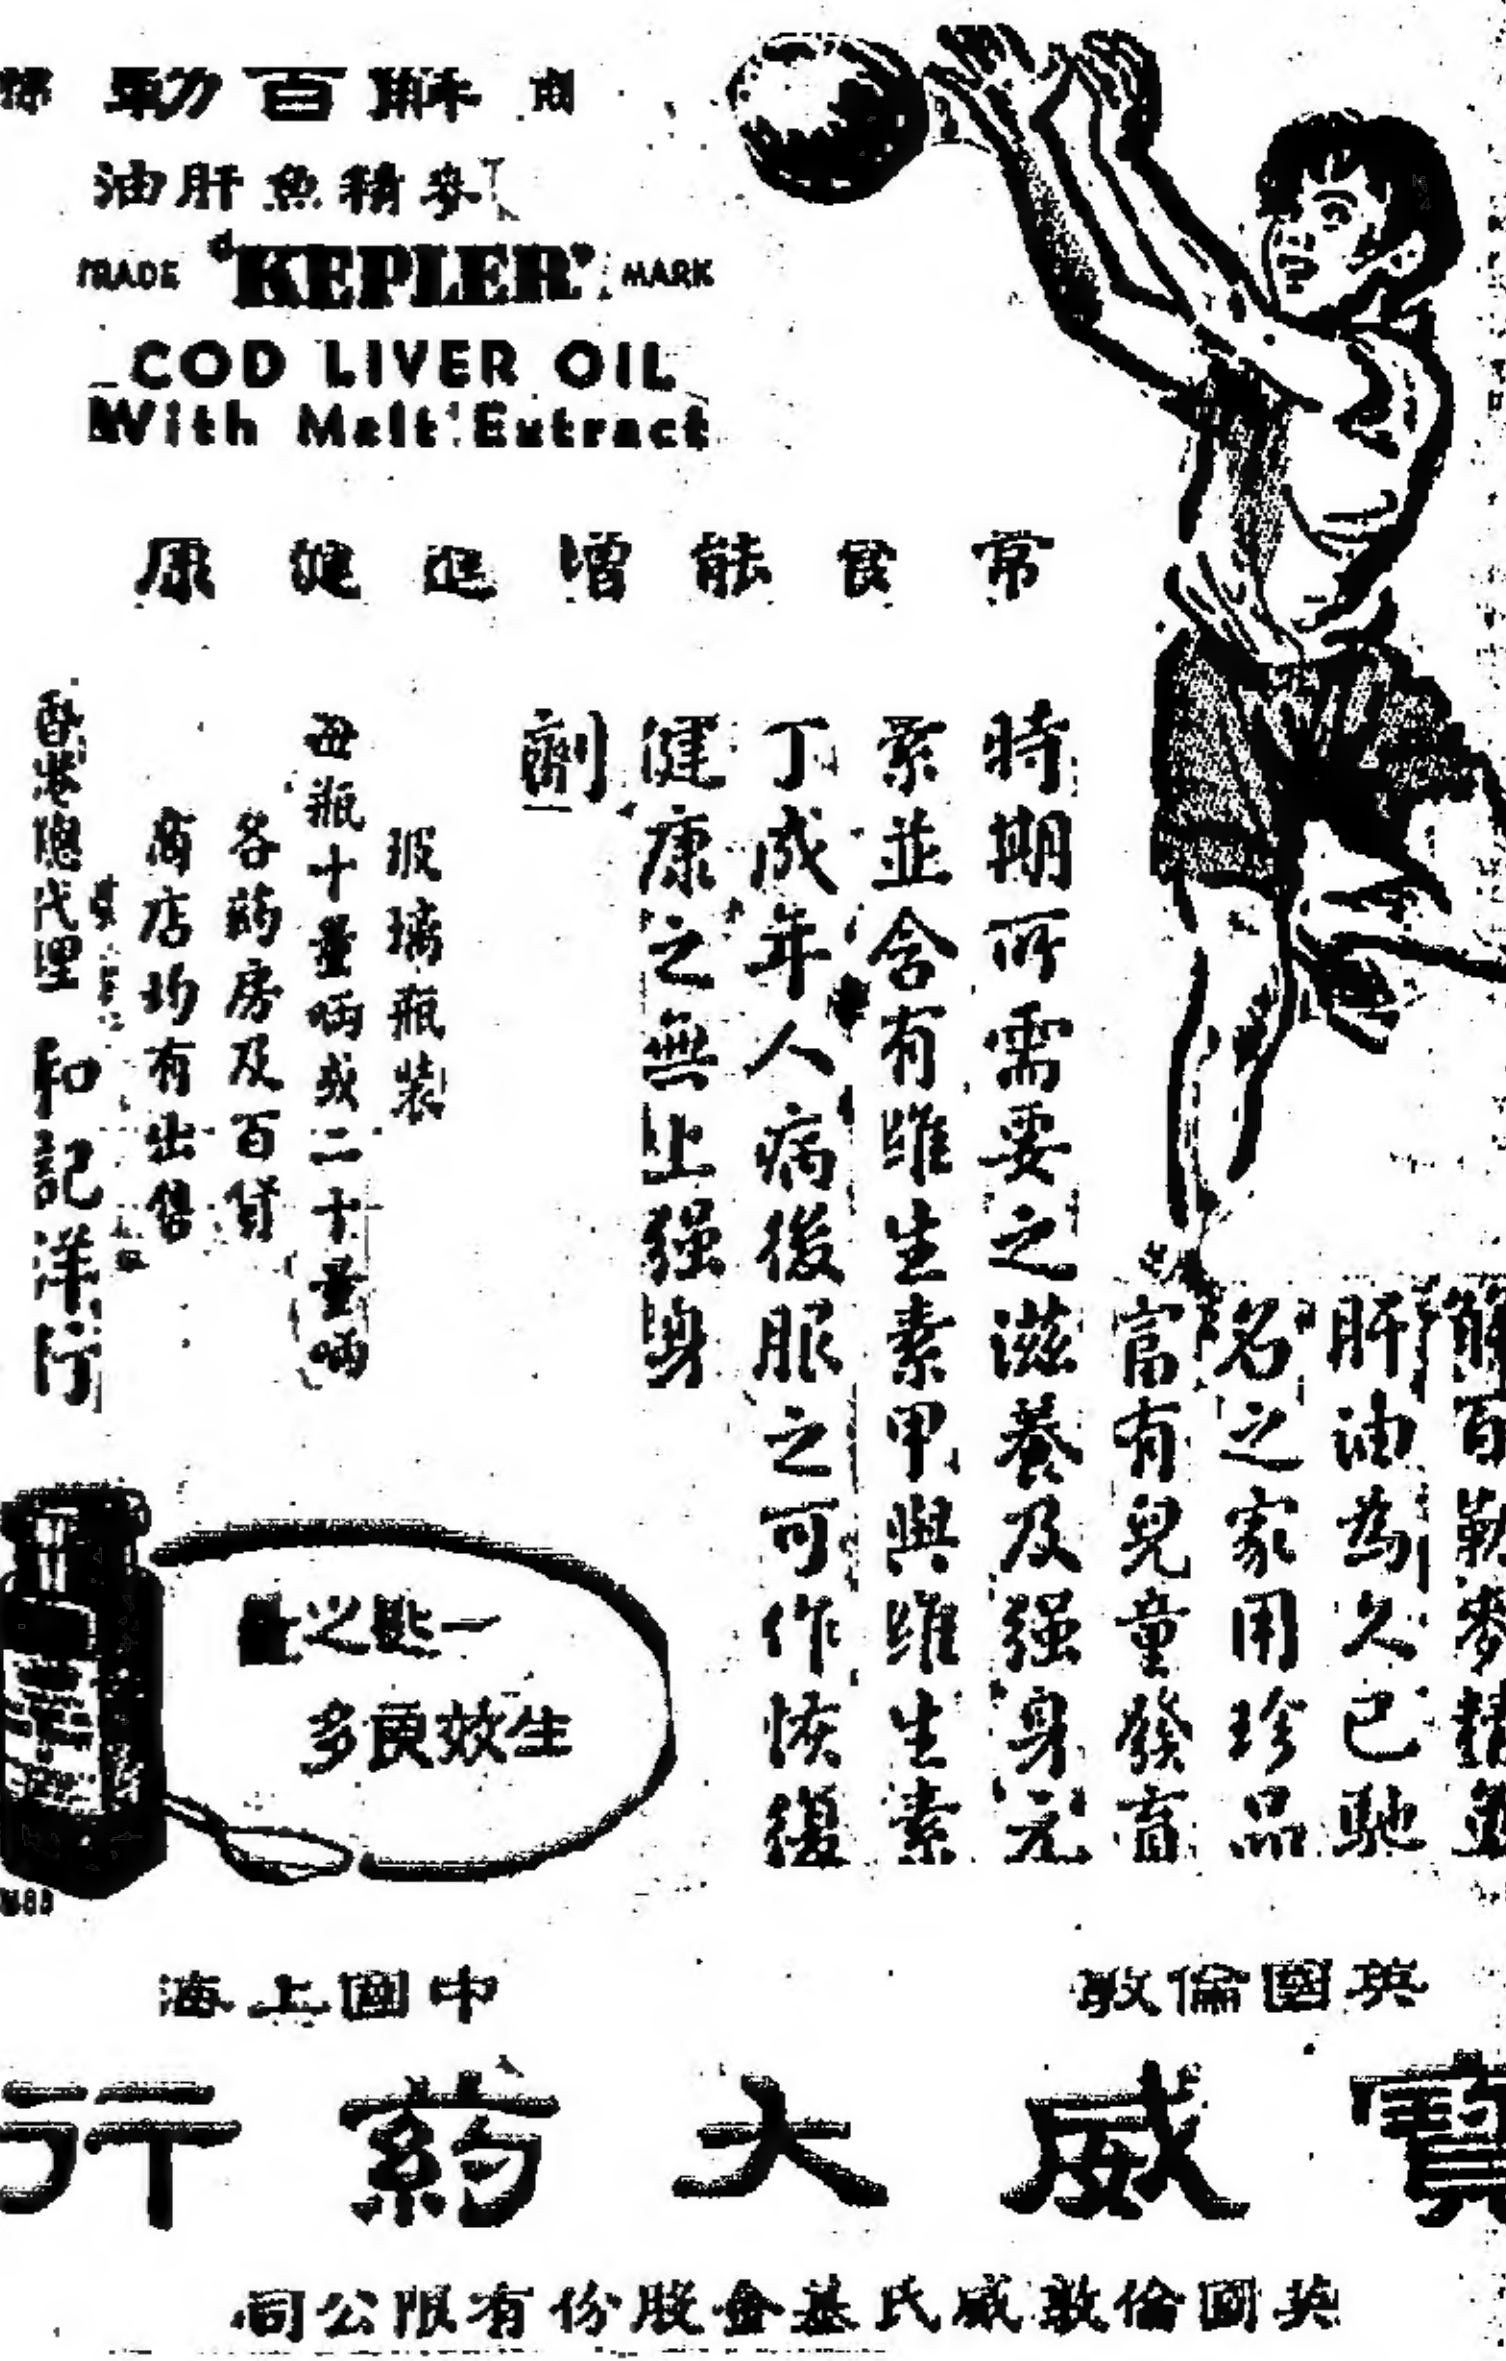 商解百勒標
麥精魚肝油
TRADE 'KEPLER' MARK
COD LIVER OIL
With Malt Extract
常食能增進健康
解百勒麥精魚
肝油為久已馳
名之家用珍品
富有兒童發育
時期所需要之滋養及强身元
素並含有維生素甲與維生素
丁成年人病後服之可作恢復
健康之無上强身
劑
玻璃瓶裝
每瓶十量唡或二十量唡
各葯房及百貨
商店均有出售
香港總代理 和記洋行
一匙之量
生效良多
英國倫敦
中國上海
寶威大葯行
英國倫敦威氏基金股份有限公司